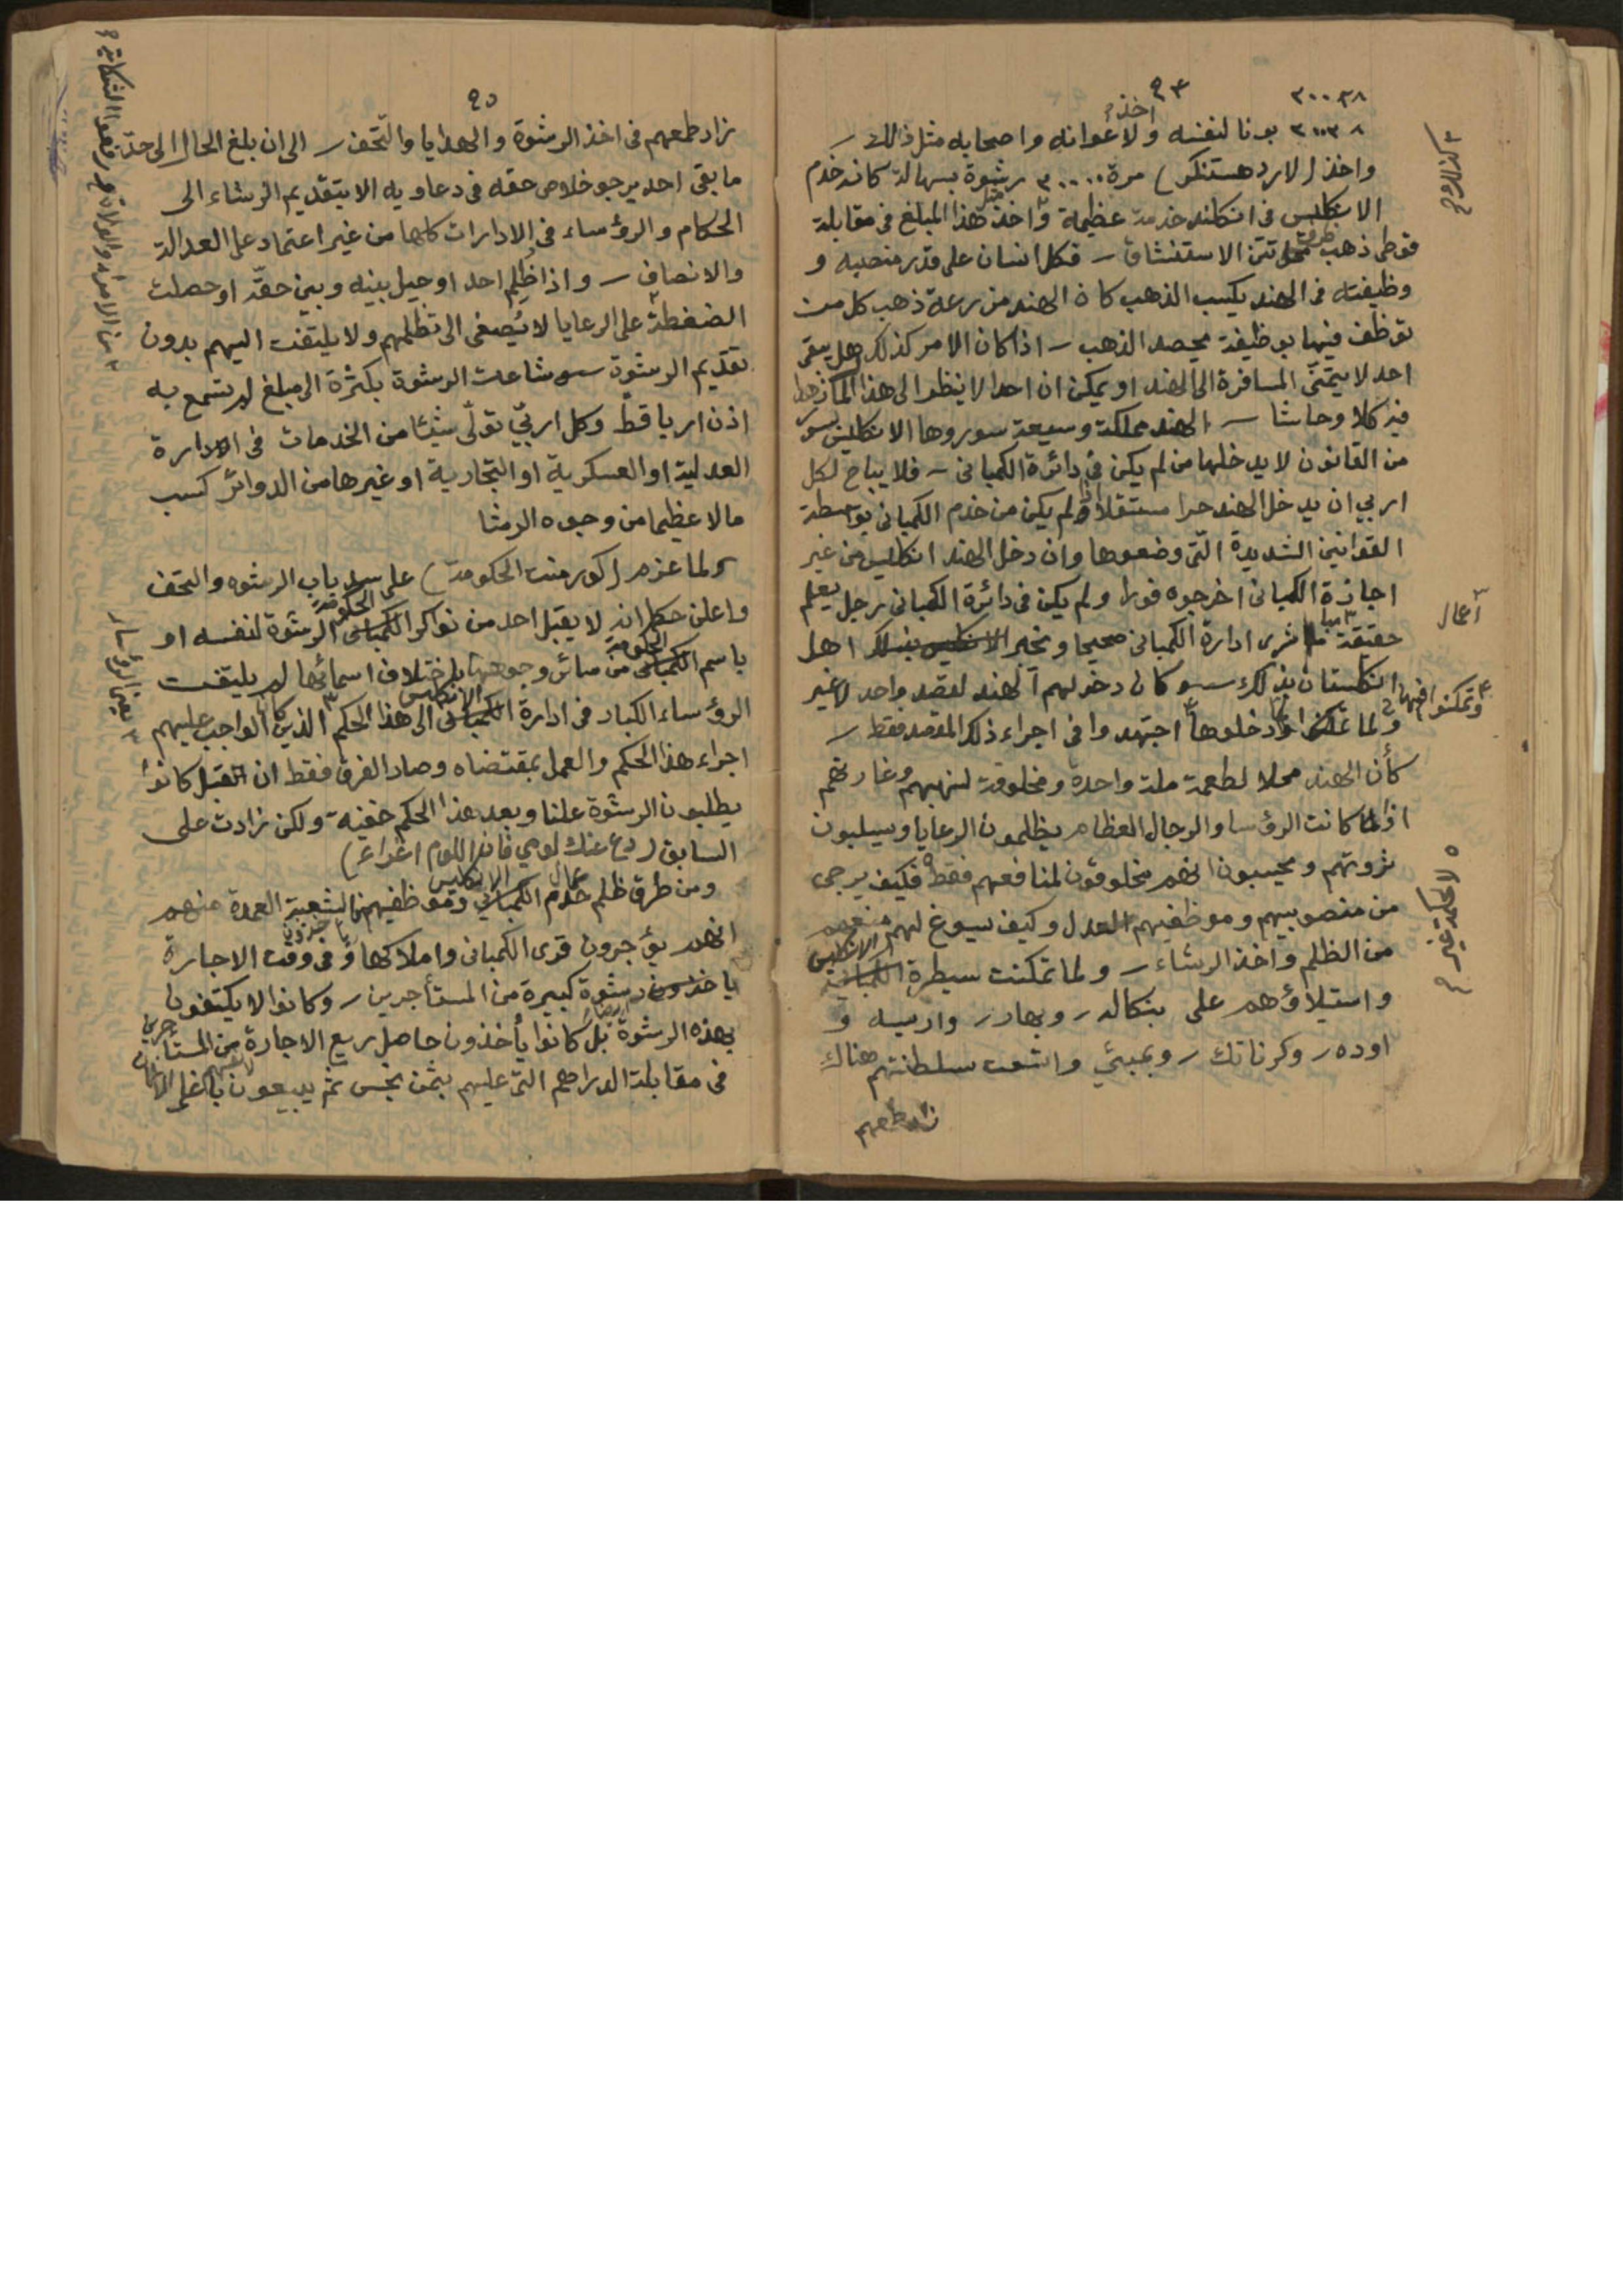 ٩٤
٢٠٠٣٨
٢٠٠٣٨ بونا لنفسه ولاعوانه واصحابه مثل ذالك ـ
اخذ
واخذ (لارد هستنكر) مرة ٢٠٠٠٠ رشوة بسهالة كانه خدم
الانكليس فى انكلند خدمة عظيمة واخذ هذا المبلغ فى مقابلة
قوطى ذهب تتن الاستنشاق ـ فكل انسان على قدر منصبه و
وظيفته فى الهند يكسب الذهب كان الهند مزرعة ذهب كل من
توظف فيها بوظيفة يحصد الذهب ـ اذا كان الامر كذلك هل يبقى
احد لا يتمنّى المسافرة الى الهند او يمكن ان احدا لا ينظر الى هذا
فيه كلا وحاشا ـ الهند مملكة وسيعة سوروها الانكليس بسور
من القانون لا يدخلها من لم يكن فى دائرة الكمبانى ـ فلا يباح لكل
اربي ان يدخل الهند حرا مستقلا ولم يكن من خدم الكمبانى بواسطة
القوانين الشديدة التى وضعوها وان دخل الهند انكليس من غير
اجازة الكمبانى اخرجوه فورا ولم يكن فى دائرة الكمبانى رجل يعلم
حقيقة ما ترى ادارة الكمبانى صحيحا ويخبر الانكليس بذلك اهل
انكلستان بذلك سو كان دخولهم الهند لقصد واحد لا غير
ولما دخلوها اجتهدوا فى اجراء ذلك المقصد فقط ـ
وتمكنوا فيها
كأن الهند محلا لطعمة ملة واحدة ومخلوقة لنهبهم وغارتهم
اذا كانت الرؤسا والرجال العظام يظلمون الرعايا ويسلبون
ثروتهم ويحسبون انهم مخلوقون لمنافعهم فقط فكيف يرجى
من منصوبيهم وموظفيهم العدل وكيف يسوغ لهم منعهم
من الظلم واخذ الرشاء ـ ولما تمكنت سيطرة الكمبانية
الانكليس
واستيلاؤهم على بنكاله ـ وبهار ـ واريسه و
اوده ـ وكرناتك ـ وبمبئي واتسعت سلطنتهم هناك
زاد طمعهم
أعمال
٩٥
زاد طمعهم فى اخذ الرشوة والهدايا والتحف ـ الى ان بلغ الحال الى حد
ما بقى احد يرجو خلاص حقه فى دعاويه الا بتقديم الرشاء الى
الحكام والرؤساء فى الادارات كلها من غير اعتماد على العدالة
والانصاف ـ واذا ظلم احد او حيل بينه وبين حقه او حصلت
الضغطة على الرعايا لا يُصغى الى تظلمهم ولا يلتفت اليهم بدون
تقديم الرشوة سو شاعت الرشوة بكثرة الى مبلغ لم يسمع به
اذن اربا قطّ وكل اربيّ تولّى شيئا من الخدمات فى الادارة
العدلية او العسكرية او التجارية او غيرها من الدوائر كسب
مالا عظيما من وجوه الرشا
ولما عزم (كورمنت الحكومة) على سد باب الرشوه والتحف
واعلن حكما انه لا يقبل احد من نواكر الكمبانى الرشوة لنفسه او
الحكومة
باسم الكمبانى من سائر وجوهها باختلاف اسمائها لم يلتفت
الحكومة
الرؤساء الكبار فى ادارة الكمبانى الى هذا الحكم الذين كان الواجب عليهم
الانكليس
اجراء هذا الحكم والعمل بمقتضاه وصار الفرق فقط ان القبل كانوا
يطلبون الرشوة علنا وبعد هذا الحكم خفية ولكن زادت على
السابق (دع عنك لومي فان اللوم اغراء)
ومن طرق ظلم خدام الكمباني وموظفيهم الشعبة العمدة منهم
عمال الانكليس
انهم يؤجرون قرى الكمبانى واملاكها و فى وقت الاجارة
ياخذون رشوة كبيرة من المستأجرين ـ وكانوا لا يكتفون
بهذه الرشوة بل كانوا يأخذون حاصل ريع الاجارة من المستأجرين
فى مقابلة الدراهم التى عليهم بثمن بخس ثم يبيعون باغلى الاثمان